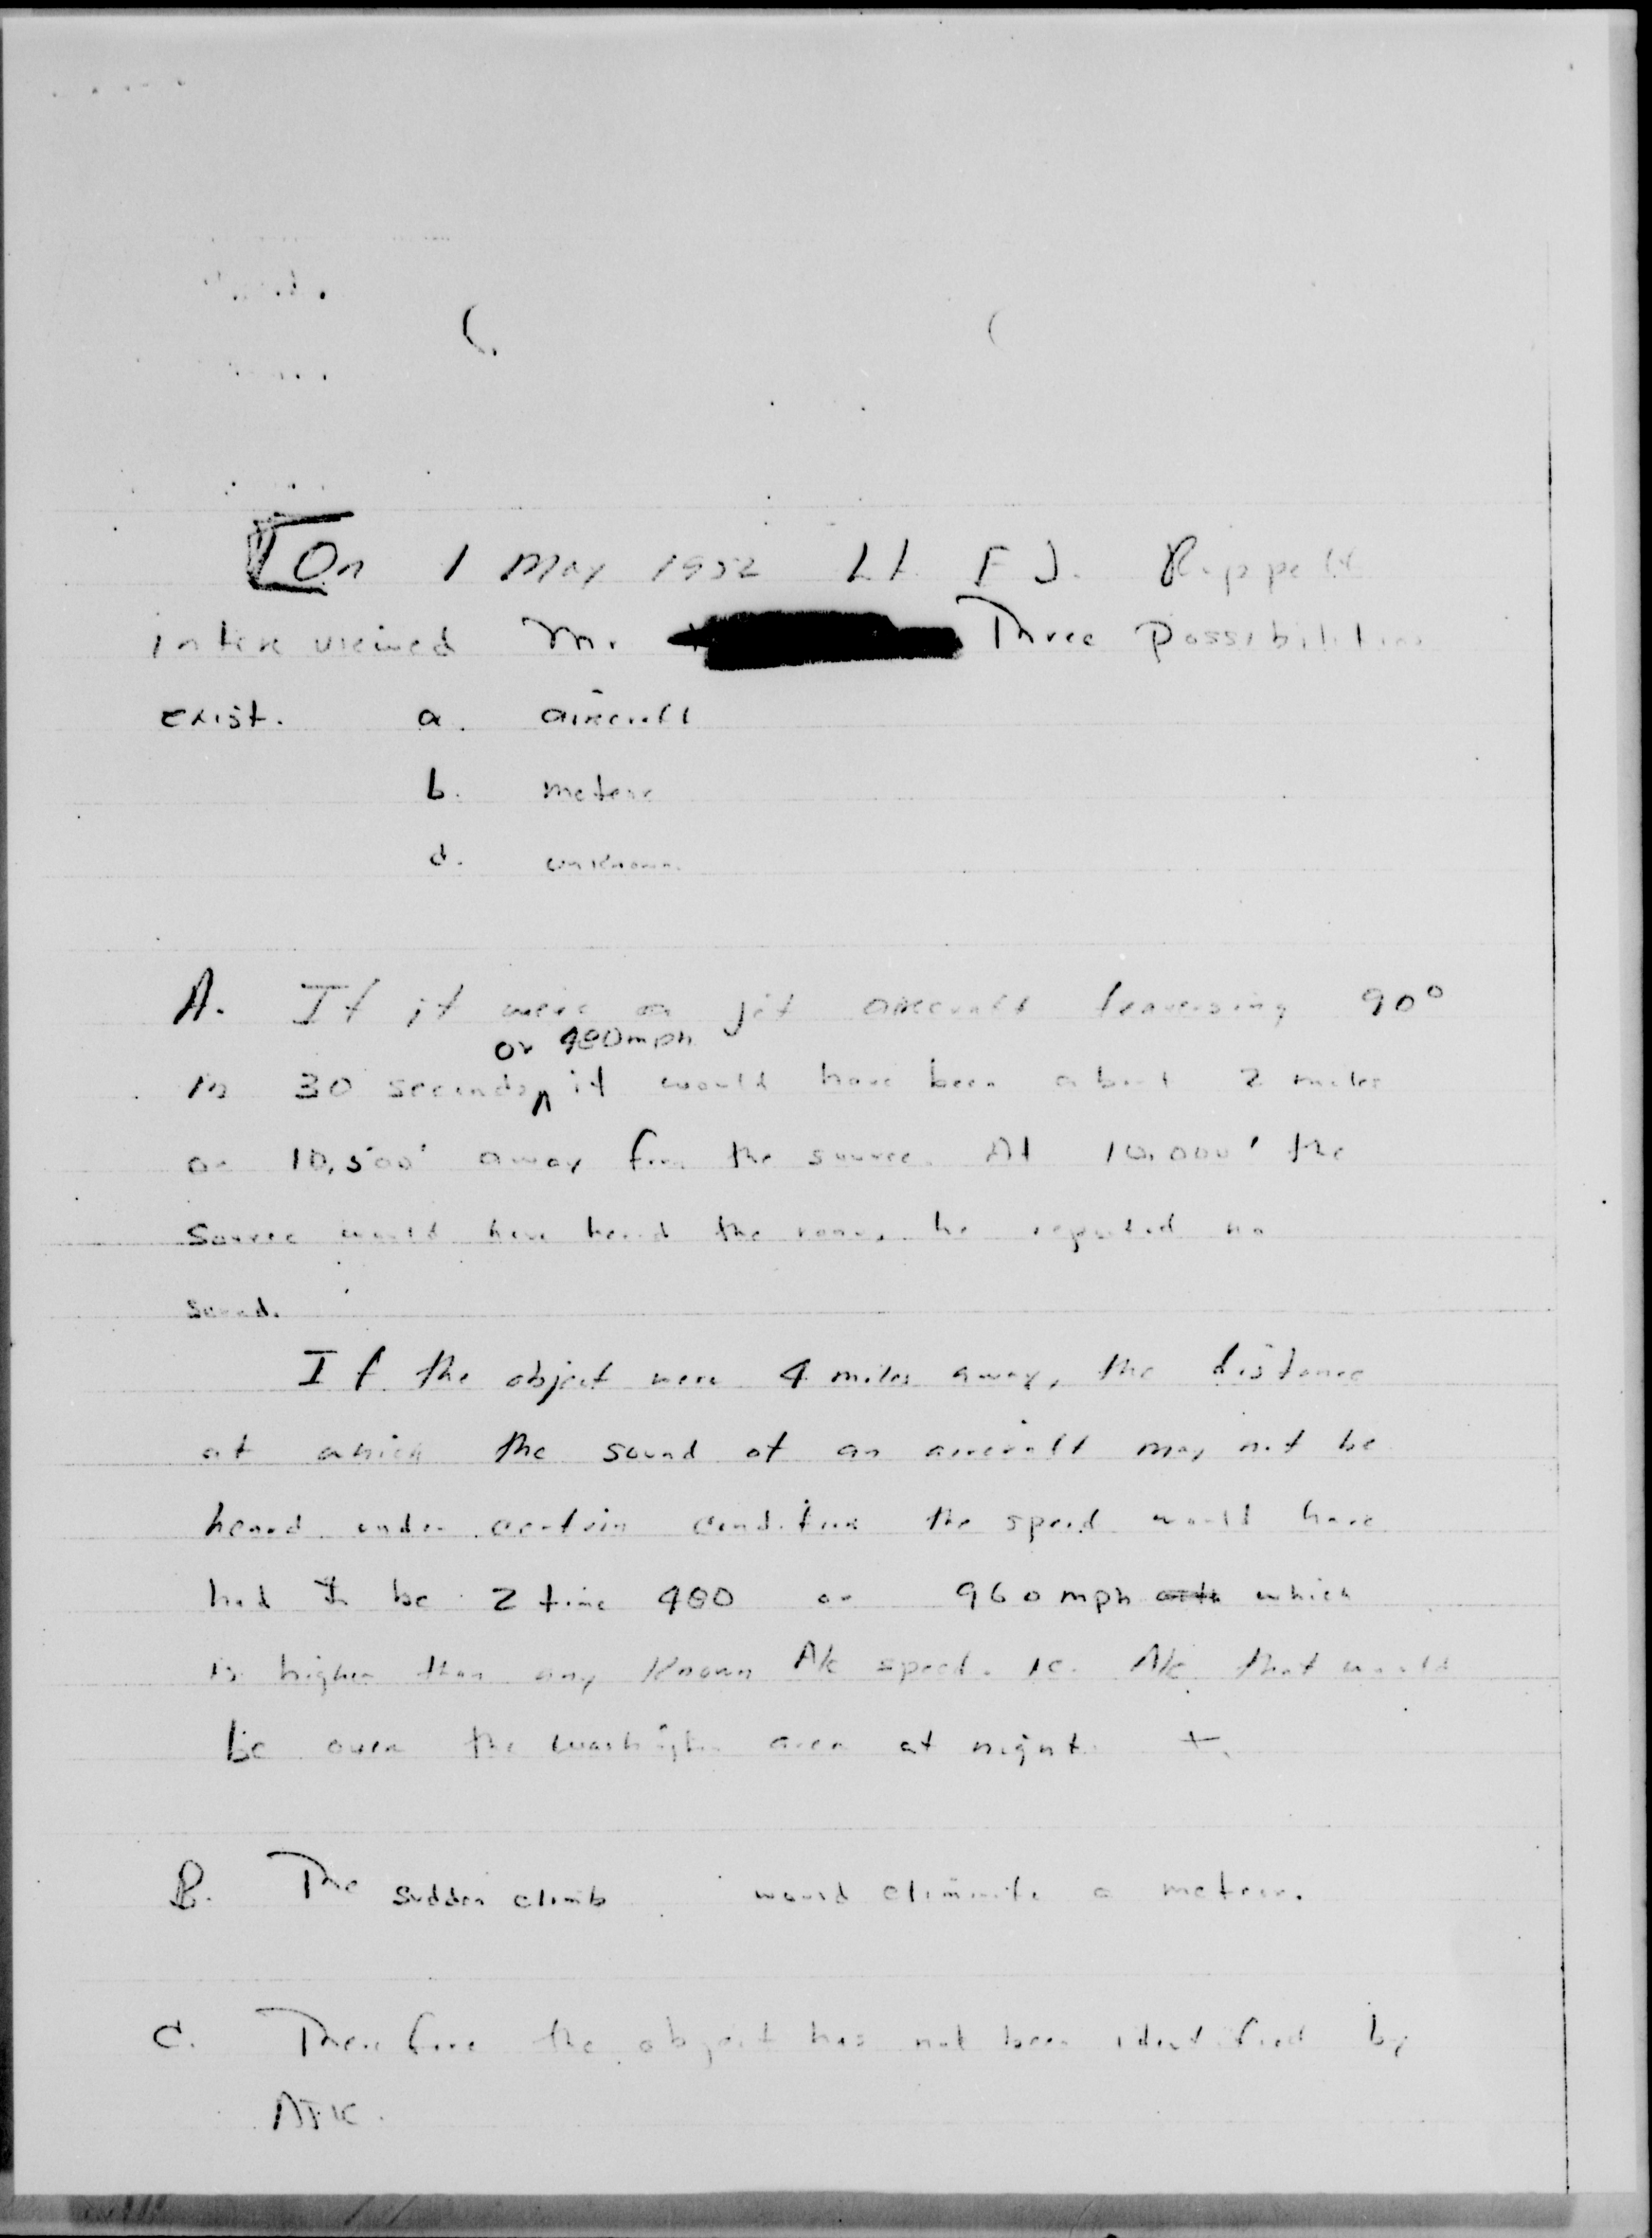 On 1 May 1952 Lt. E J. Ruppelt
interviewed Mr. Three Possibilities
exist. a. aircraft
b. meteor
d. unknown.
A. If it were a jet aircraft traversing 90°
or 480 mph
in 30 seconds, it would have been about 2 miles
or 10,500' away from the source. At 10,000' the
source would have heard the roar, he reported no
sound.
If the object were 4 miles away, the distance
at which the sound of an aircraft may not be
heard under certain conditions the speed would have
had to be 2 time 480 or 960 mph which
is higher than any known A/c speed. ie. A/c that would
be over the Washington area at night.
B. The sudden climb would eliminate a meteor.
C. Therefore the object has not been identified by
ATIC.